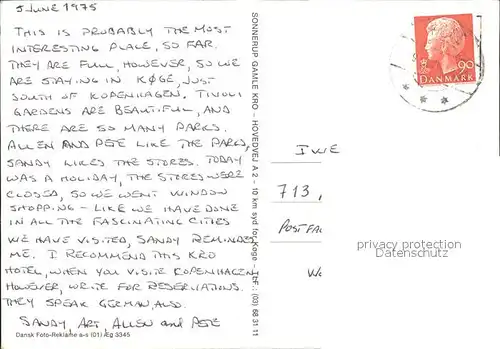 5 JUNE 1975
THIS IS PROBABLY THE MOST
INTERESTING PLACE, SO FAR.
THEY ARE FULL, HOWEVER, SO WE
ARE STAYING IN KØGE, JUST
SOUTH OF KOPENHAGEN. TIVOLI
GARDENS ARE BEAUTIFUL, AND
THERE ARE SO MANY PARKS.
ALLEN AND PETE LIKE THE PARKS,
SANDY LIKES THE STORES. TODAY
WAS A HOLIDAY, THE STORES WERE
CLOSED, SO WE WENT WINDOW
SHOPPING - LIKE WE HAVE DONE
IN ALL THE FASCINATING CITIES
WE HAVE VISITED, SANDY REMINDES
ME. I RECOMMEND THIS KRO
HOTEL, WHEN YOU VISIT KOPENHAGEN.
HOWEVER, WRITE FOR RESERVATIONS.
THEY SPEAK GERMAN, ALSO.
SANDY, ART, ALLEN and PETE
Dansk Foto-Reklame a-s (01) Æg 3345
SONNERUP GAMLE KRO - HOVEDVEJ A 2 - 10 km syd for Køge - Tlf.: (03) 68 31 11
90
DANMARK
IWE
713,
POSTFA
privacy protection
Datenschutz
W